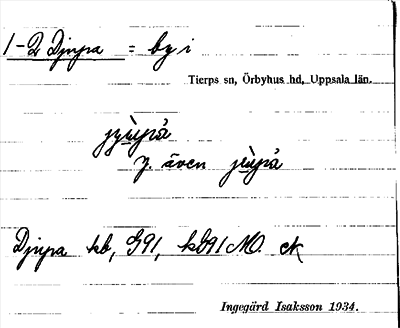 1-2 Djupa = by i
Tierps sn, Örbyhus hd, Uppsala län.
jyùpå
y. även jùpå
Djupa kb, G91, kG91 M. ek
Ingegärd Isaksson 1934.